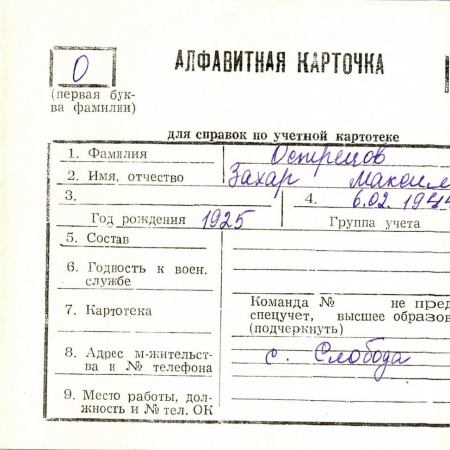 О
АЛФАВИТНАЯ КАРТОЧКА
(первая бук-
ва фамилии)
для справок по учетной картотеке
1. Фамилия Острецов
2. Имя, отчество Захар Максим
3. 4. 6.02.194
Год рождения 1925 Группа учета
5. Состав
6. Годность к воен.
службе
7. Картотека
Команда № не пред
спецучет, высшее образов
(подчеркнуть)
8. Адрес м-жительст-
ва и № телефона
с. Слобода
9. Место работы, дол-
жность и № тел. ОК